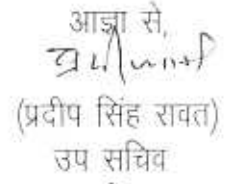 आज्ञा से,
(प्रदीप सिंह रावत)
उप सचिव